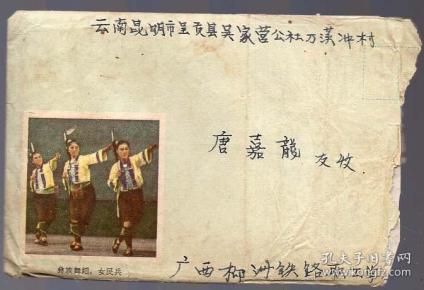 云南昆明市呈贡县吴家营公社万溪冲村
唐嘉龍 友收
彝族舞蹈：女民兵
广西柳州铁路
孔夫子旧书网